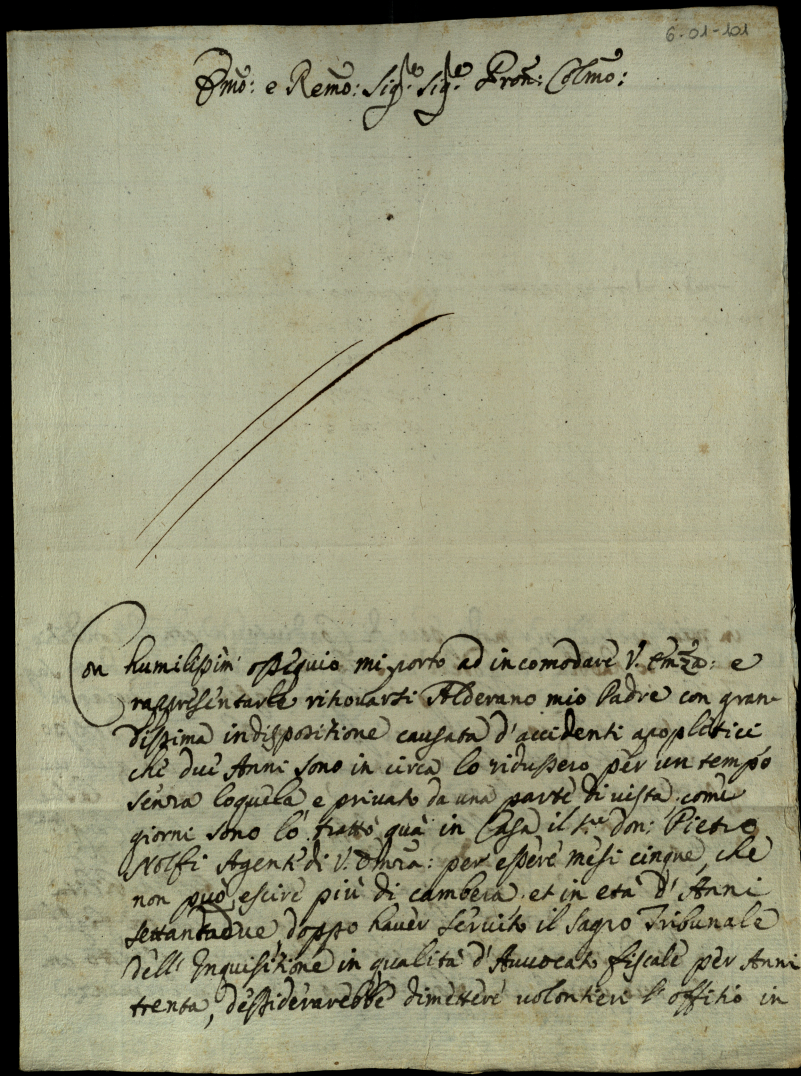 6-01-101
Emo: e Remo: Sig.r Sig.r Pron: Colmo:
Con humilissim' ossequio mi porto ad incomodare V. Emza: e
rappresentarle ritrovarsi Alderano mio Padre con gran-
dissima indisposizione causata d'accidenti apopletici
che due Anni sono in circa lo ridussero per un tempo
senza loquela e privato da una parte di vista come
giorni sono lo trattò quà in Casa il S.re Don: Pietro
Nolfi Agente di V. Emza: per essere mesi cinque, che
non può escire più di cambera et in età d'Anni
settantadue doppo haver servito il Sagro Tribunale
dell' Inquisitione in qualità d'Avvocato fiscale per Anni
trenta, dessiderarebbe dimettere volontieri l'offitio in